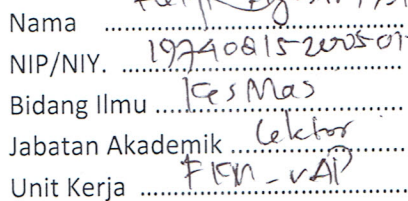 Nama
NIP/NIY. 19740815-2005-01-
Bidang Ilmu KesMas
Jabatan Akademik Lektor
Unit Kerja FKM-